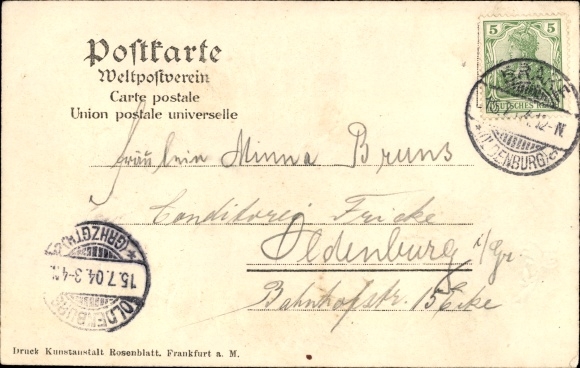 Postkarte
Weltpostverein
Carte postale
Union postale universelle
5 5
DEUTSCHES REICH
BRAKE
12-N.
*(OLDENBURG)*
Fräulein Minna Bruns
Conditorei Fricke
Oldenburg i/Gr
Bahnhofstr. 15 Ecke
OLDENBURG
15.7.04.3-4N.
*(GRHZGTH.)*
Druck Kunstanstalt Rosenblatt. Frankfurt a. M.